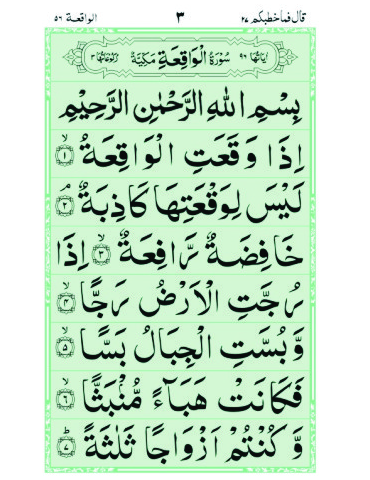 قال فما خطبكم ٢٧ ٣ الواقعة ٥٦
اٰيَاتُهَا ٩٦ سُوْرَةُ الْوَاقِعَةِ مَكِّيَّةٌ رُكُوْعَاتُهَا ٣
بِسْمِ اللّٰهِ الرَّحْمٰنِ الرَّحِيْمِ
اِذَا وَقَعَتِ الْوَاقِعَةُ ۙ‏﴿۱﴾
لَيْسَ لِوَقْعَتِهَا كَاذِبَةٌ ۘ‏﴿۲﴾
خَافِضَةٌ رَّافِعَةٌ ۙ‏﴿۳﴾ اِذَا
رُجَّتِ الْاَرْضُ رَجًّا ۙ‏﴿۴﴾
وَّبُسَّتِ الْجِبَالُ بَسًّا ۙ‏﴿۵﴾
فَكَانَتْ هَبَآءً مُّنْۢبَثًّا ۙ‏﴿۶﴾
وَّكُنْتُمْ اَزْوَاجًا ثَلٰثَةً ؕ‏﴿۷﴾